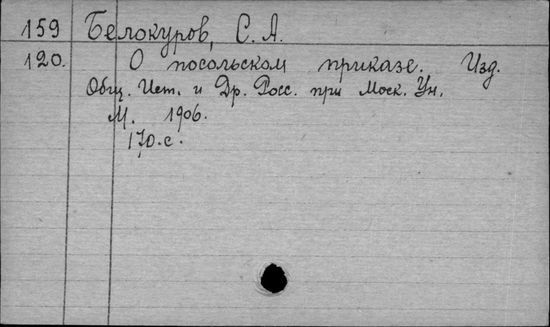 159 Белокуров, С. А.
120. О посольском приказе. Изд.
Общ. Ист. и Др. Росс. при Моск. Ун.
М. 1906.
170 с.